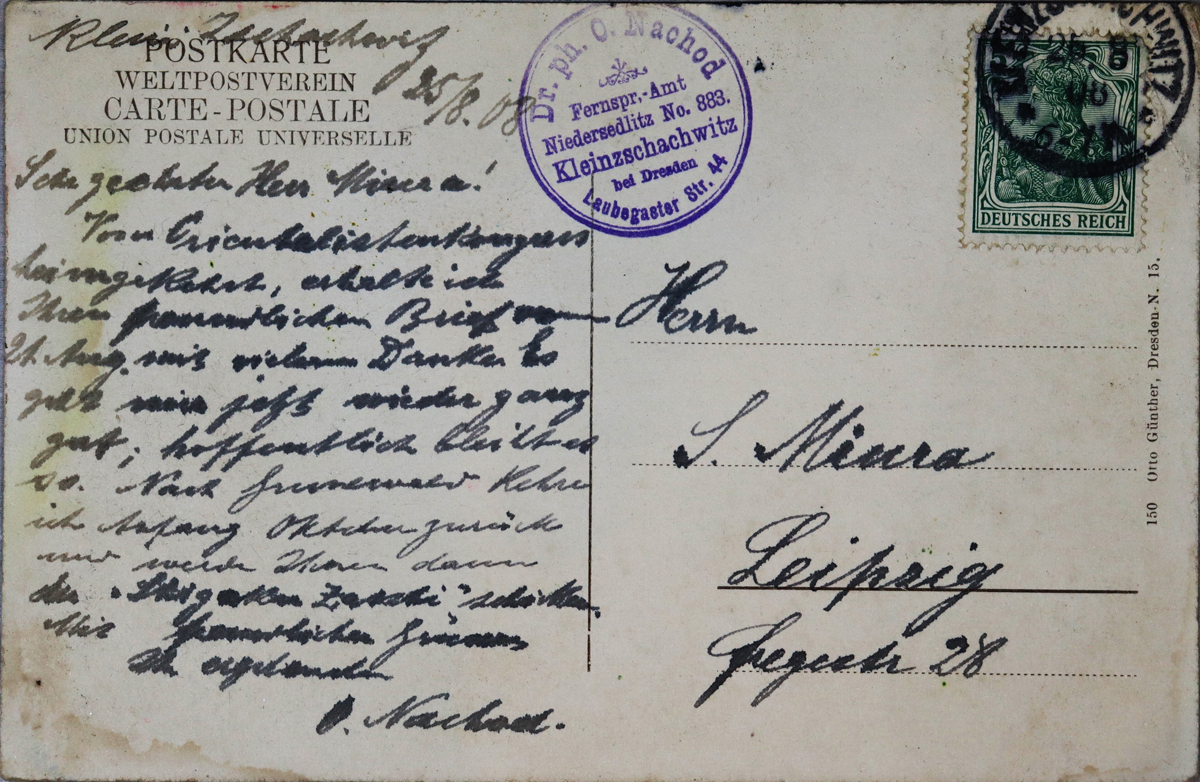 Klein Zschachwitz
25/8. 08
POSTKARTE
WELTPOSTVEREIN
CARTE-POSTALE
UNION POSTALE UNIVERSELLE
Dr. ph. O. Nachod
Fernspr.-Amt
Niedersedlitz No. 883.
Kleinzschachwitz
bei Dresden
Laubegaster Str. 44
KLEINZSCHACHWITZ
25. 8
08
DEUTSCHES REICH
Sehr geehrter Herr Miura!
Vom Orientalistenkongress
heimgekehrt, erhalte ich
Ihren freundlichen Brief vom
21. Aug. mit vielem Danke. Es
geht mir jetzt wieder ganz
gut; hoffentlich bleibt es
so. Nach Grunewald kehre
ich Anfang Oktober zurück
und werde Ihnen dann
schicken.
Mit freundlichen Grüssen
Ihr ergebenster
O. Nachod.
Herrn
S. Miura
Leipzig
28
150 Otto Günther, Dresden-N. 15.